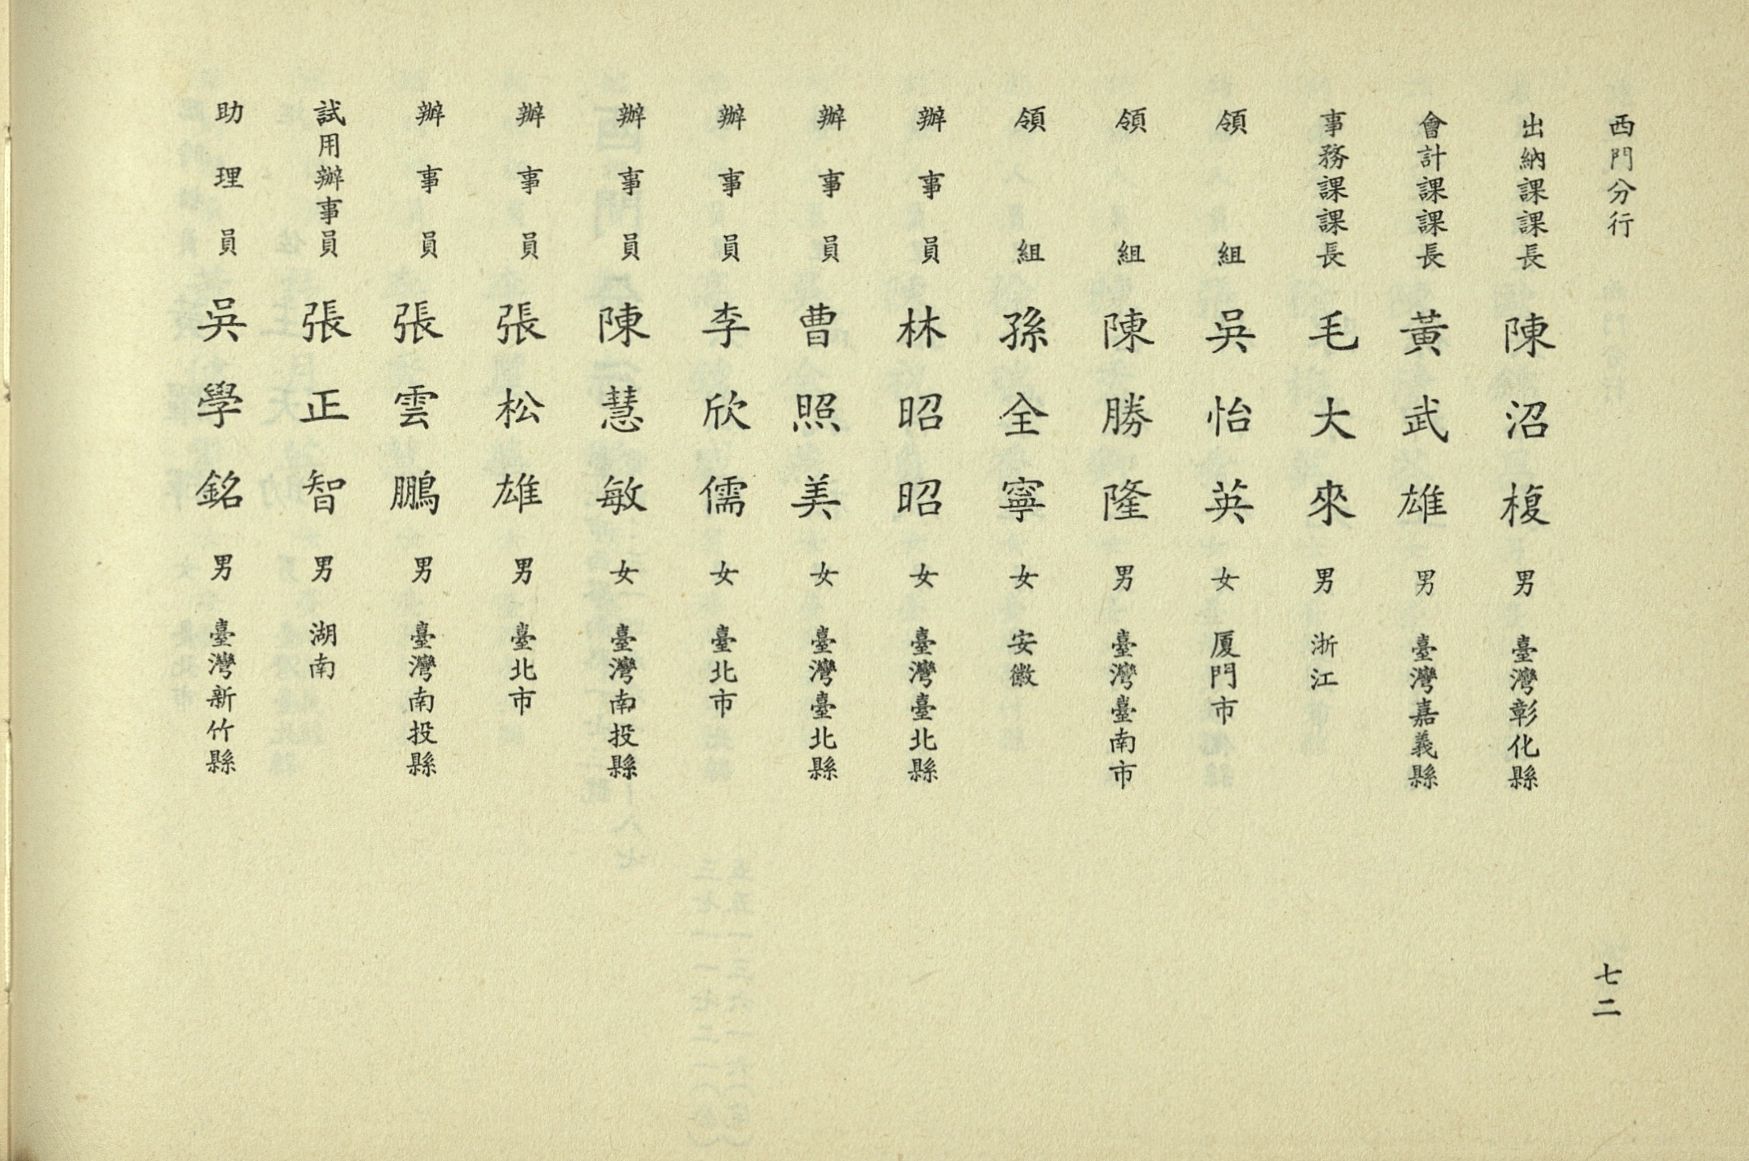 西門分行
出納課課長 陳沼榎 男 臺灣彰化縣
會計課課長 黃武雄 男 臺灣嘉義縣
事務課課長 毛大來 男 浙江
領組 吳怡英 女 厦門市
領組 陳勝隆 男 臺灣臺南市
領組 孫全寧 女 安徽
辦事員 林昭昭 女 臺灣臺北縣
辦事員 曹照美 女 臺灣臺北縣
辦事員 李欣儒 女 臺北市
辦事員 陳慧敏 女 臺灣南投縣
辦事員 張松雄 男 臺北市
辦事員 張雲鵬 男 臺灣南投縣
試用辦事員 張正智 男 湖南
助理員 吳學銘 男 臺灣新竹縣
七二